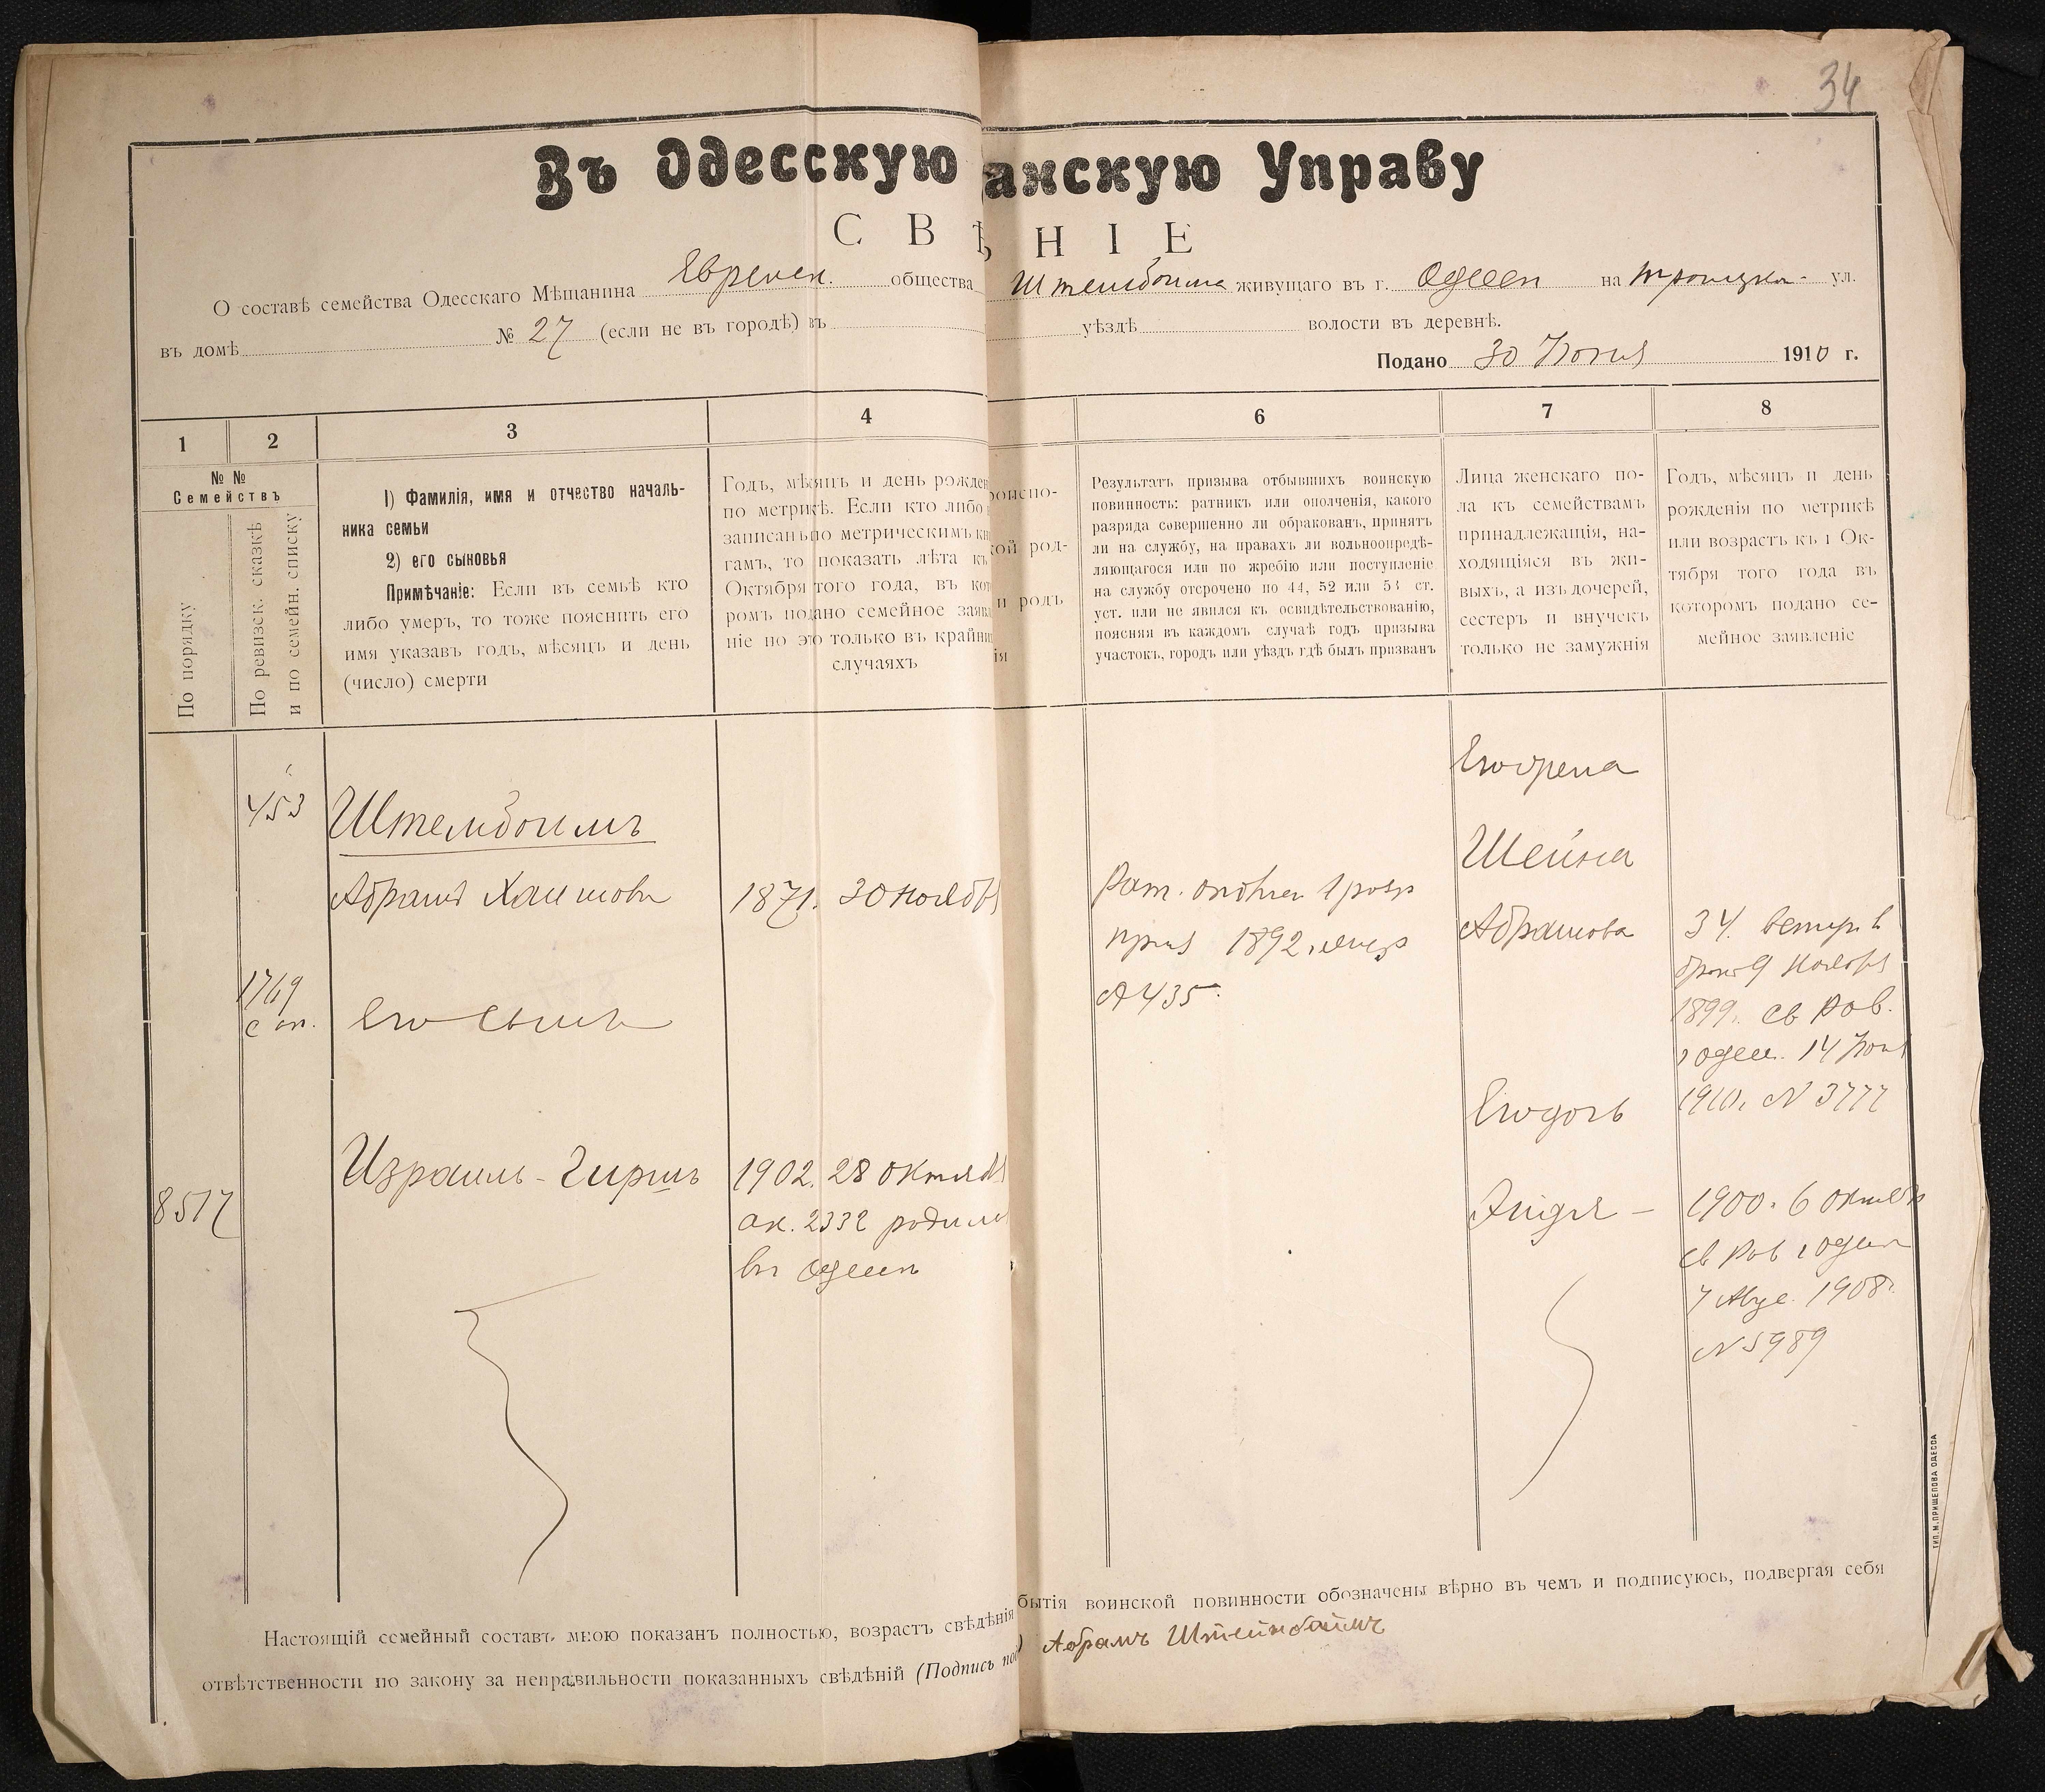 34
Въ Одесскую анскую Управу
СВѢНІЕ
О составѣ семейства Одесскаго Мѣщанина Еврейск. общества Штембоима живущаго въ г. Одессѣ на Троицкой ул.
въ домѣ № 27 (если не въ городѣ) въ уѣздѣ волости въ деревнѣ.
Подано 30 Іюня 1910 г.
1 2 3 4 6 7 8
№ №
Семействъ
По порядку
По ревизск. сказкѣ
и по семейн. списку
1) Фамилія, имя и отчество началь-
ника семьи
2) его сыновья
Примѣчаніе: Если въ семьѣ кто
либо умеръ, то тоже пояснить его
имя указавъ годъ, мѣсяцъ и день
(число) смерти
Годъ, мѣсяцъ и день рожден
по метрикѣ. Если кто либо
записанъ по метрическимъ кн
гамъ, то показать лѣта къ
Октября того года, въ кот
ромъ подано семейное заявл
ніе но это только въ крайни
случаяхъ
роисно-
кой род-
и родъ
ія
Результатъ призыва отбывшихъ воинскую
повинность: ратникъ или ополченія, какого
разряда совершенно ли обракованъ, принятъ
ли на службу, на правахъ ли вольноопредѣ-
ляющагося или по жребію или поступленіе
на службу отсрочено по 44, 52 или 53 ст.
уст. или не явился къ освидѣтельствованію,
поясняя въ каждомъ случаѣ годъ призыва
участокъ, городъ или уѣздъ гдѣ былъ призванъ
Лица женскаго по-
ла къ семействамъ
принадлежащія, на-
ходящіяся въ жи-
выхъ, а изъ дочерей,
сестеръ и внучекъ
только не замужнія
Годъ, мѣсяцъ и день
рожденія по метрикѣ
или возрастъ къ 1 Ок-
тября того года въ
которомъ подано се-
мейное заявленіе
453
Штембоимъ
Абрамъ Хаимовъ
1871. 30 ноября
Рат. ополч. 1 разр
приз 1892.
№ 435.
1769
с оп.
Его сынъ
8517
Израиль-Гиршъ
1902. 28 октяб
ак. 2332 родился
въ Одессѣ
Его жена
Шейна
Абрамова
34. вступ. в
бракъ 9 ноября
1899. св Рав.
г Одес. 14 Іюня
1910. № 3777
Его дочь
1900. 6 октяб
св Рав г Одессы
7 Авг. 1908г.
№ 5989
Настоящій семейный составъ мною показанъ полностью, возрастъ свѣдѣнія бытія воинской повинности обозначены вѣрно въ чемъ и подписуюсь, подвергая себя
отвѣтственности по закону за неправильности показанныхъ свѣдѣній (Подпись под) Абрамъ Штейнбаймъ
ТИП. М. ПРИЩЕПОВА ОДЕССА